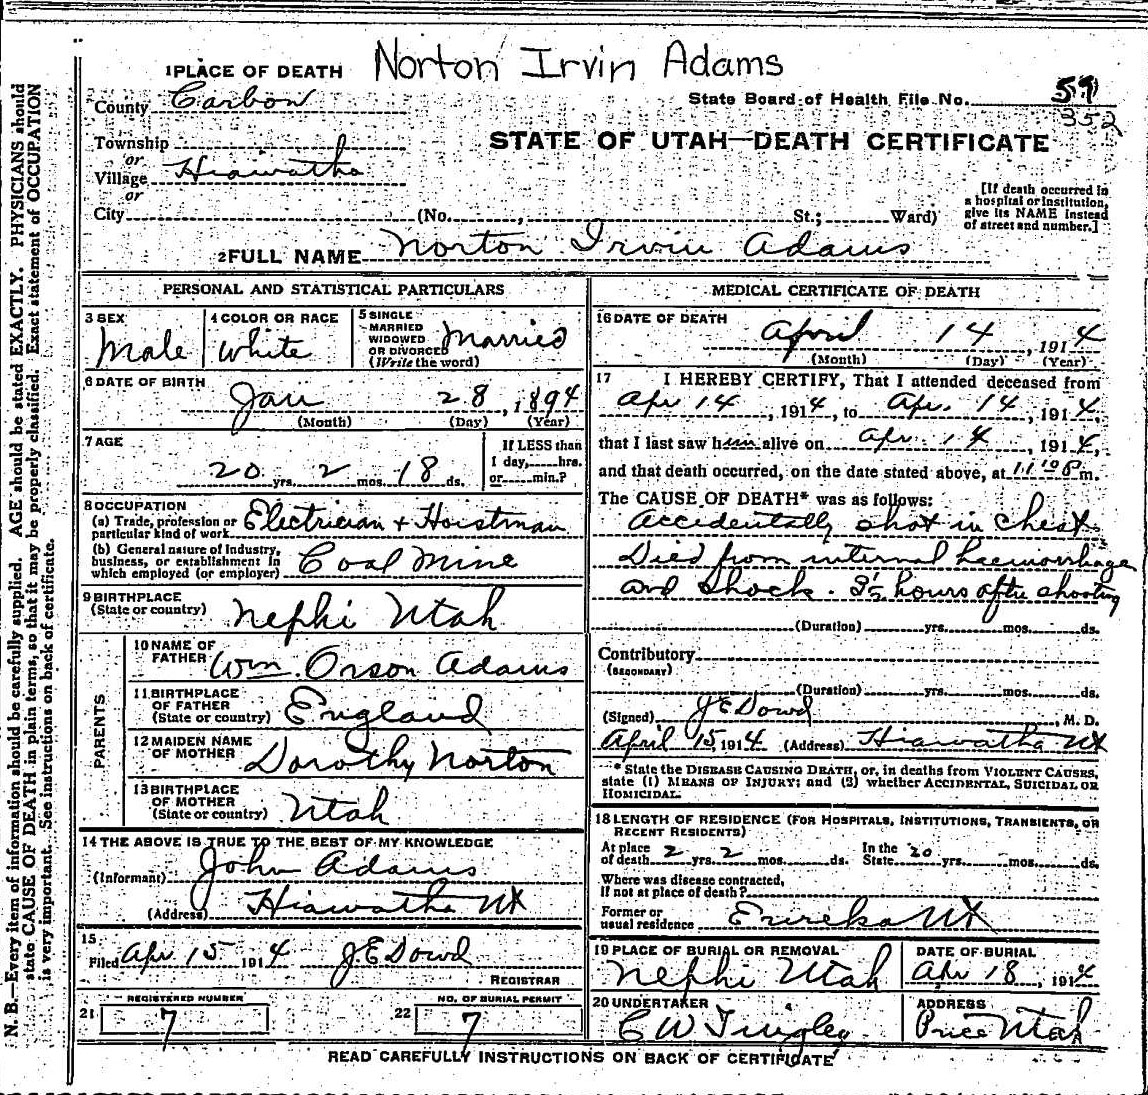 Norton Irvin Adams
1 PLACE OF DEATH
County Carbon
State Board of Health File No. 59
352
Township
or
Village Hiawatha
or
STATE OF UTAH—DEATH CERTIFICATE
City (No. , St.; Ward)
[If death occurred in a hospital or institution, give its NAME instead of street and number.]
2 FULL NAME Norton Irvin Adams
PERSONAL AND STATISTICAL PARTICULARS
3 SEX
Male
4 COLOR OR RACE
White
5 SINGLE MARRIED WIDOWED OR DIVORCED (Write the word)
Married
6 DATE OF BIRTH
Jan 28, 1894
(Month) (Day) (Year)
7 AGE
20 yrs. 2 mos. 18 ds.
If LESS than
1 day,.....hrs.
or.....min.?
8 OCCUPATION
(a) Trade, profession or particular kind of work Electrician + Hoistman
(b) General nature of Industry, business, or establishment in which employed (or employer) Coal Mine
9 BIRTHPLACE
(State or country) Nephi Utah
PARENTS
10 NAME OF FATHER Wm. Orson Adams
11 BIRTHPLACE OF FATHER (State or country) England
12 MAIDEN NAME OF MOTHER Dorothy Norton
13 BIRTHPLACE OF MOTHER (State or country) Utah
14 THE ABOVE IS TRUE TO THE BEST OF MY KNOWLEDGE
(Informant) John Adams
(Address) Hiawatha Ut
15
Filed Apr 15 1914 J E Dowd
REGISTRAR
REGISTERED NUMBER
21 7
NO. OF BURIAL PERMIT
22 7
MEDICAL CERTIFICATE OF DEATH
16 DATE OF DEATH
April 14, 1914
(Month) (Day) (Year)
17 I HEREBY CERTIFY, That I attended deceased from
Apr 14, 1914, to Apr. 14, 1914,
that I last saw him alive on Apr. 14, 1914,
and that death occurred, on the date stated above, at 11 P m.
The CAUSE OF DEATH* was as follows:
Accidentally shot in chest
Died from internal haemorrhage
and shock. hours after shooting
(Duration) yrs. mos. ds.
Contributory
(SECONDARY)
(Duration) yrs. mos. ds.
(Signed) J E Dowd, M. D.
April 15 1914 (Address) Hiawatha Ut
*State the DISEASE CAUSING DEATH, or, in deaths from VIOLENT CAUSES,
state (1) MEANS OF INJURY; and (2) whether ACCIDENTAL, SUICIDAL OR
HOMICIDAL.
18 LENGTH OF RESIDENCE (FOR HOSPITALS, INSTITUTIONS, TRANSIENTS, OR
RECENT RESIDENTS)
At place of death 2 yrs. 2 mos. ds. In the State 20 yrs. mos. ds.
Where was disease contracted,
If not at place of death?
Former or
usual residence Eureka Ut
19 PLACE OF BURIAL OR REMOVAL
Nephi Utah
DATE OF BURIAL
Apr 18, 1914
20 UNDERTAKER
C W Tingley
ADDRESS
Price Utah
READ CAREFULLY INSTRUCTIONS ON BACK OF CERTIFICATE
N. B.—Every item of information should be carefully supplied. AGE should be stated EXACTLY. PHYSICIANS should
state CAUSE OF DEATH in plain terms, so that it may be properly classified. Exact statement of OCCUPATION
is very important. See instructions on back of certificate.